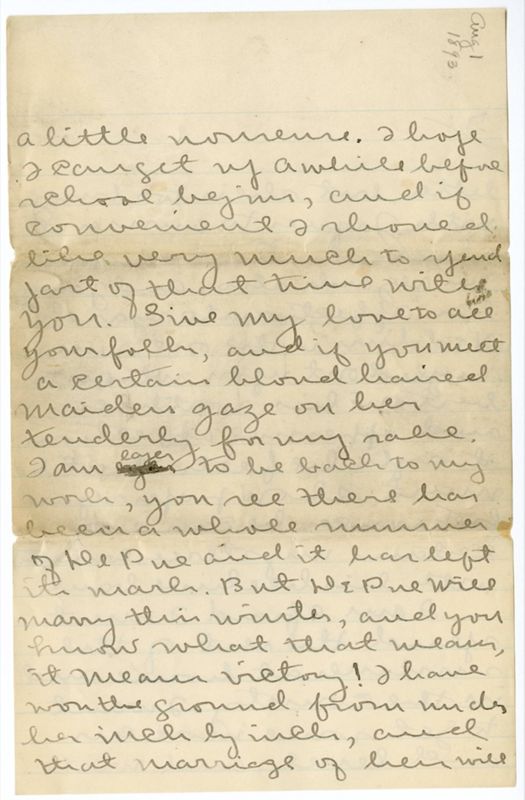 Aug 1
1892
a little nonsense. I hope
I can get up awhile before
school begins, and if
convenient I should
like very much to spend
part of that time with
you. Give my love to all
your folks, and if you meet
a certain blond haired
maiden gaze on her
tenderly for my sake.
I am eager to be back to my
work, you see there has
been a whole summer
of De Pue and it has left
its mark. But De Pue will
marry this winter, and you
know what that means,
it means victory! I have
won the ground from under
her inch by inch, and
that marriage of hers will